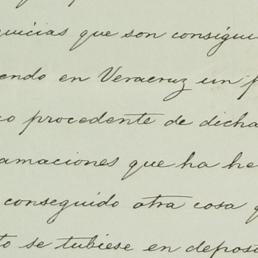 quicias que son consigui
endo en Veracruz un p
co procedente de dicha
amaciones que ha he
conseguido otra cosa q
to se tubiese en deposi